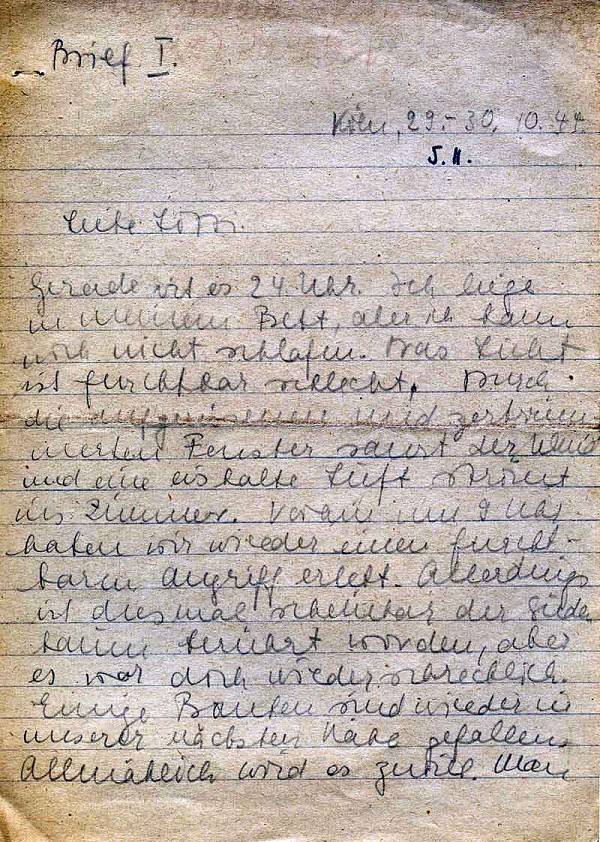 Brief I.
Köln, 29.-30. 10. 44.
5.11.
Liebe
Gerade ist es 24 Uhr. Ich liege
in meinem Bett, aber ich kann
noch nicht schlafen. Das Licht
ist furchtbar schlecht, Durch
die aufgerissenen und zertrüm-
merten Fenster saust der Wind
und eine eiskalte Luft strömt
ins Zimmer. um 9 Uhr
haben wir wieder einen furcht-
baren Angriff erlebt. Allerdings
ist diesmal scheinbar der Süden
kaum berührt worden, aber
es war doch wieder schrecklich.
Einige Bomben sind wieder in
unserer nächsten Nähe gefallen.
Allmählich wird es zuviel. Man